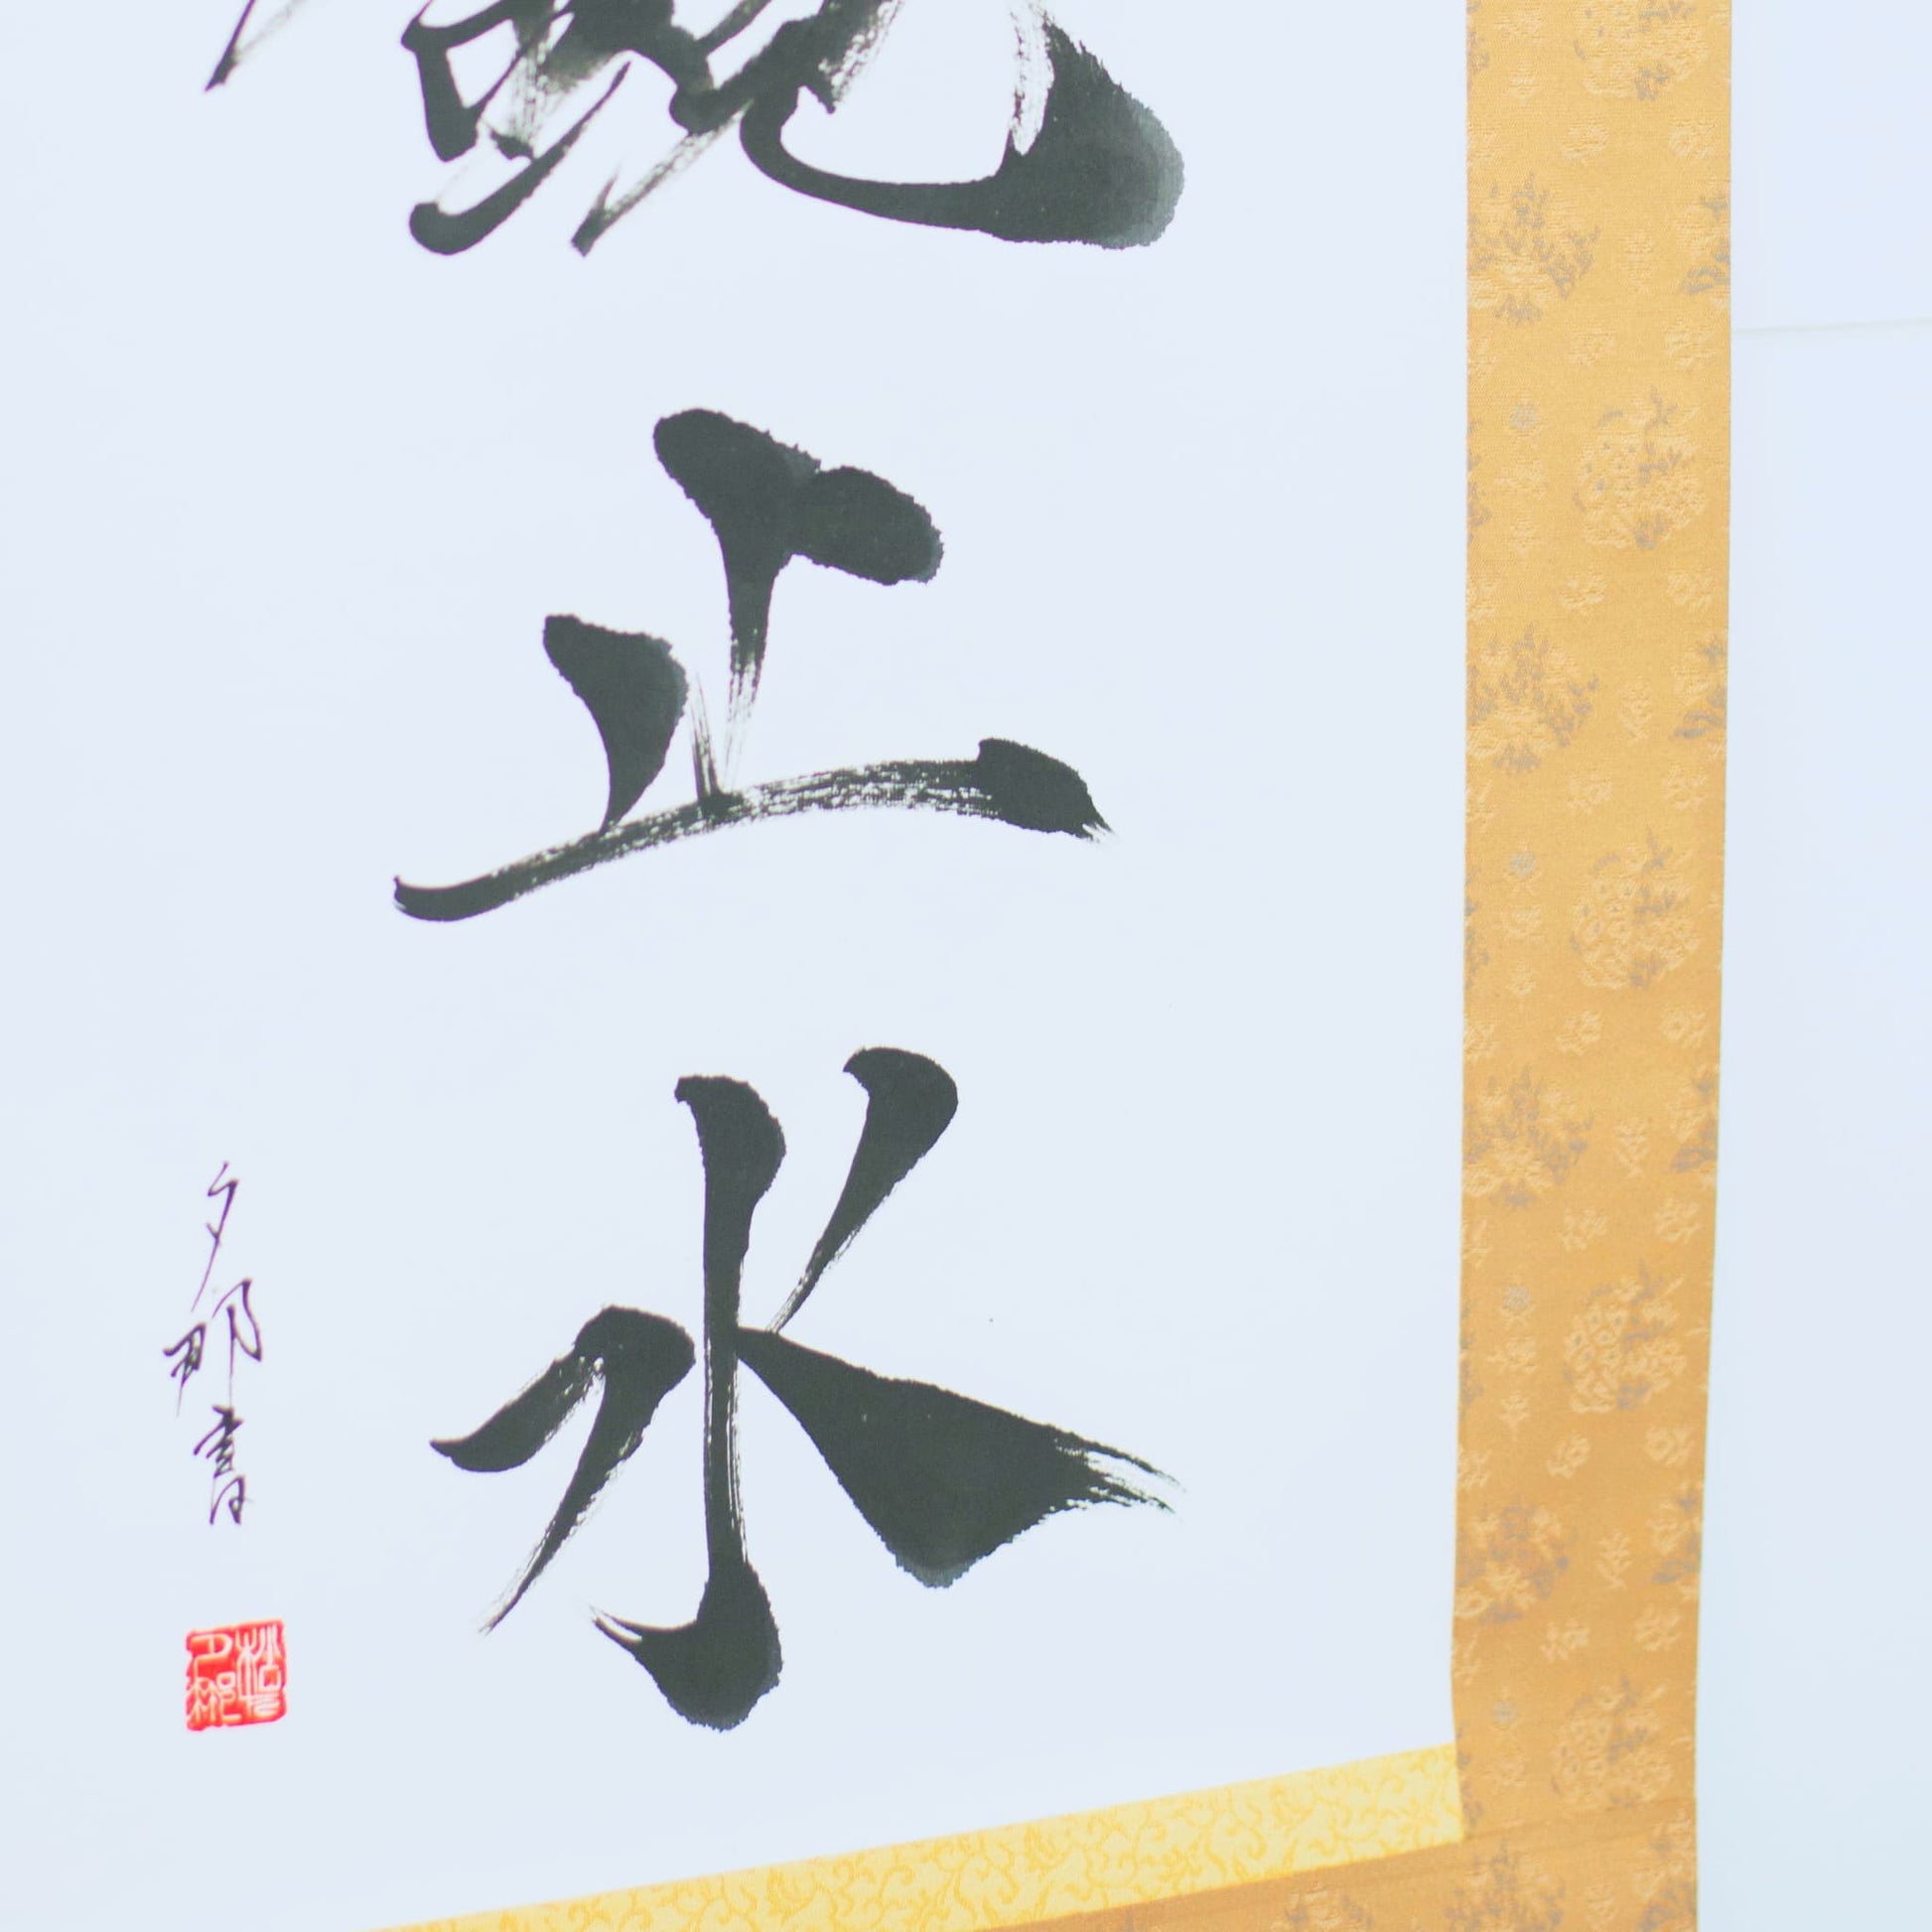 鏡止水
夕那書